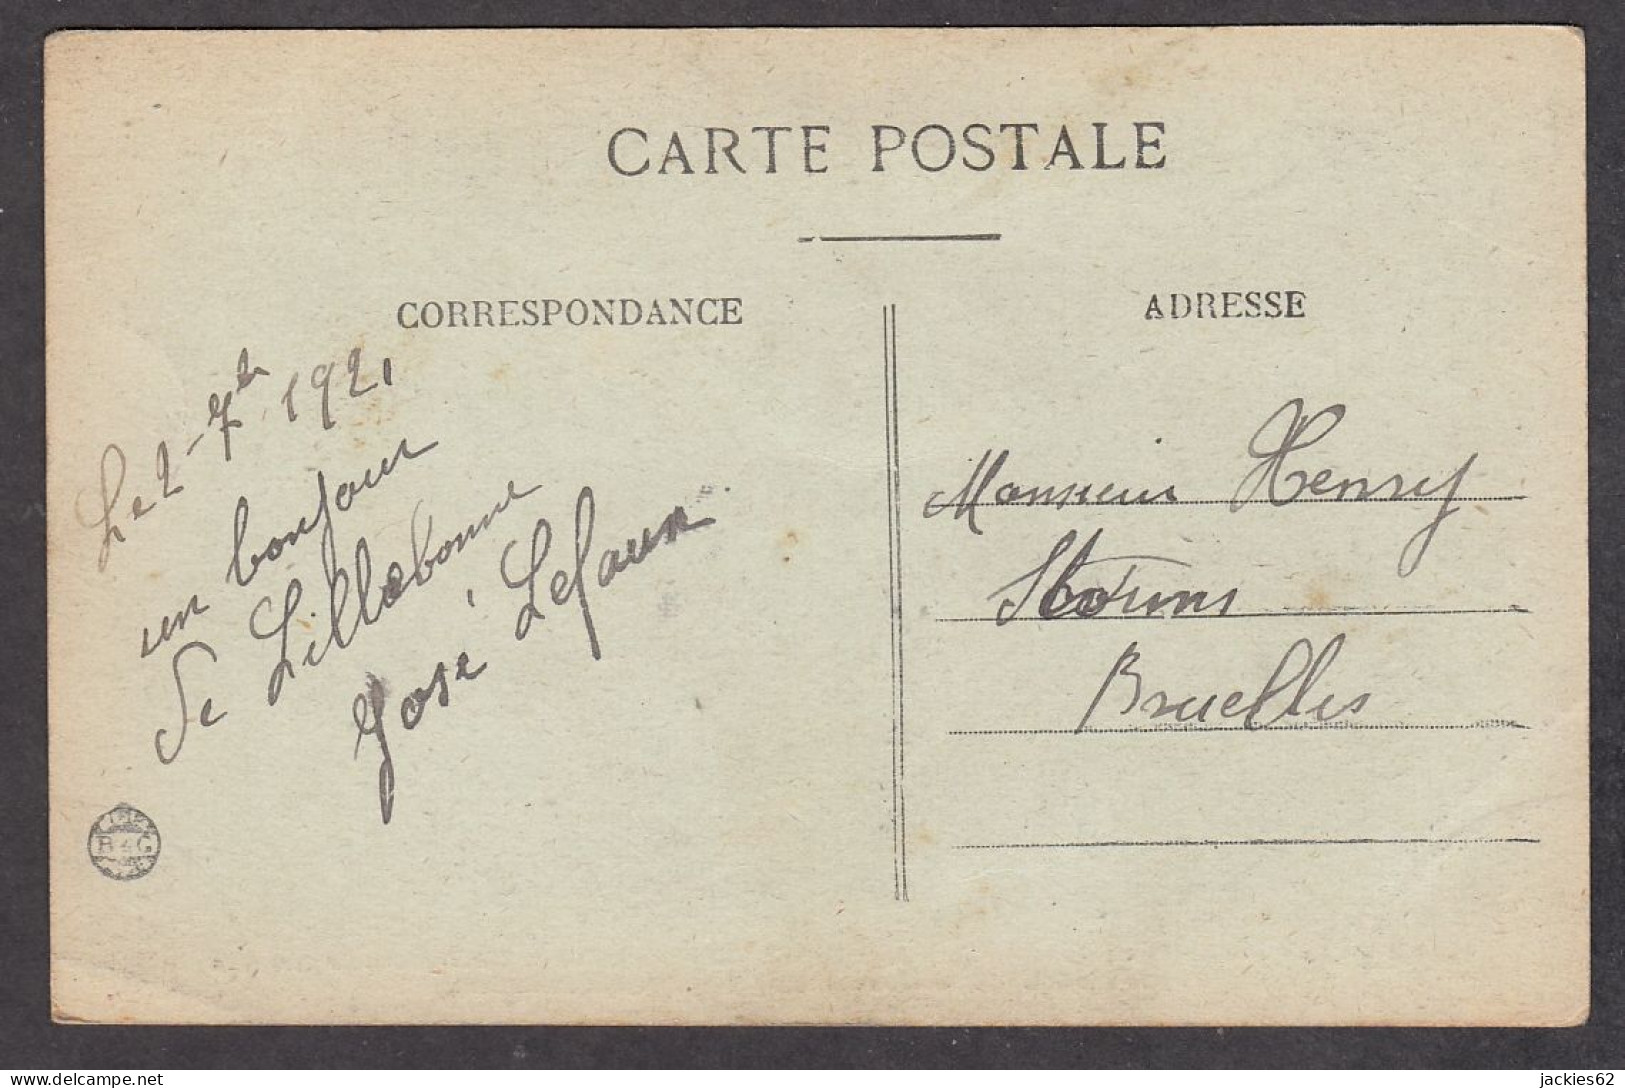 CARTE POSTALE
CORRESPONDANCE
ADRESSE
Le 2-7bre 1921
un bonjour
De Lillebonne
José Lefaux
Monsieur Henry
Bruxelles
B & G
delcampe.net
jackies62